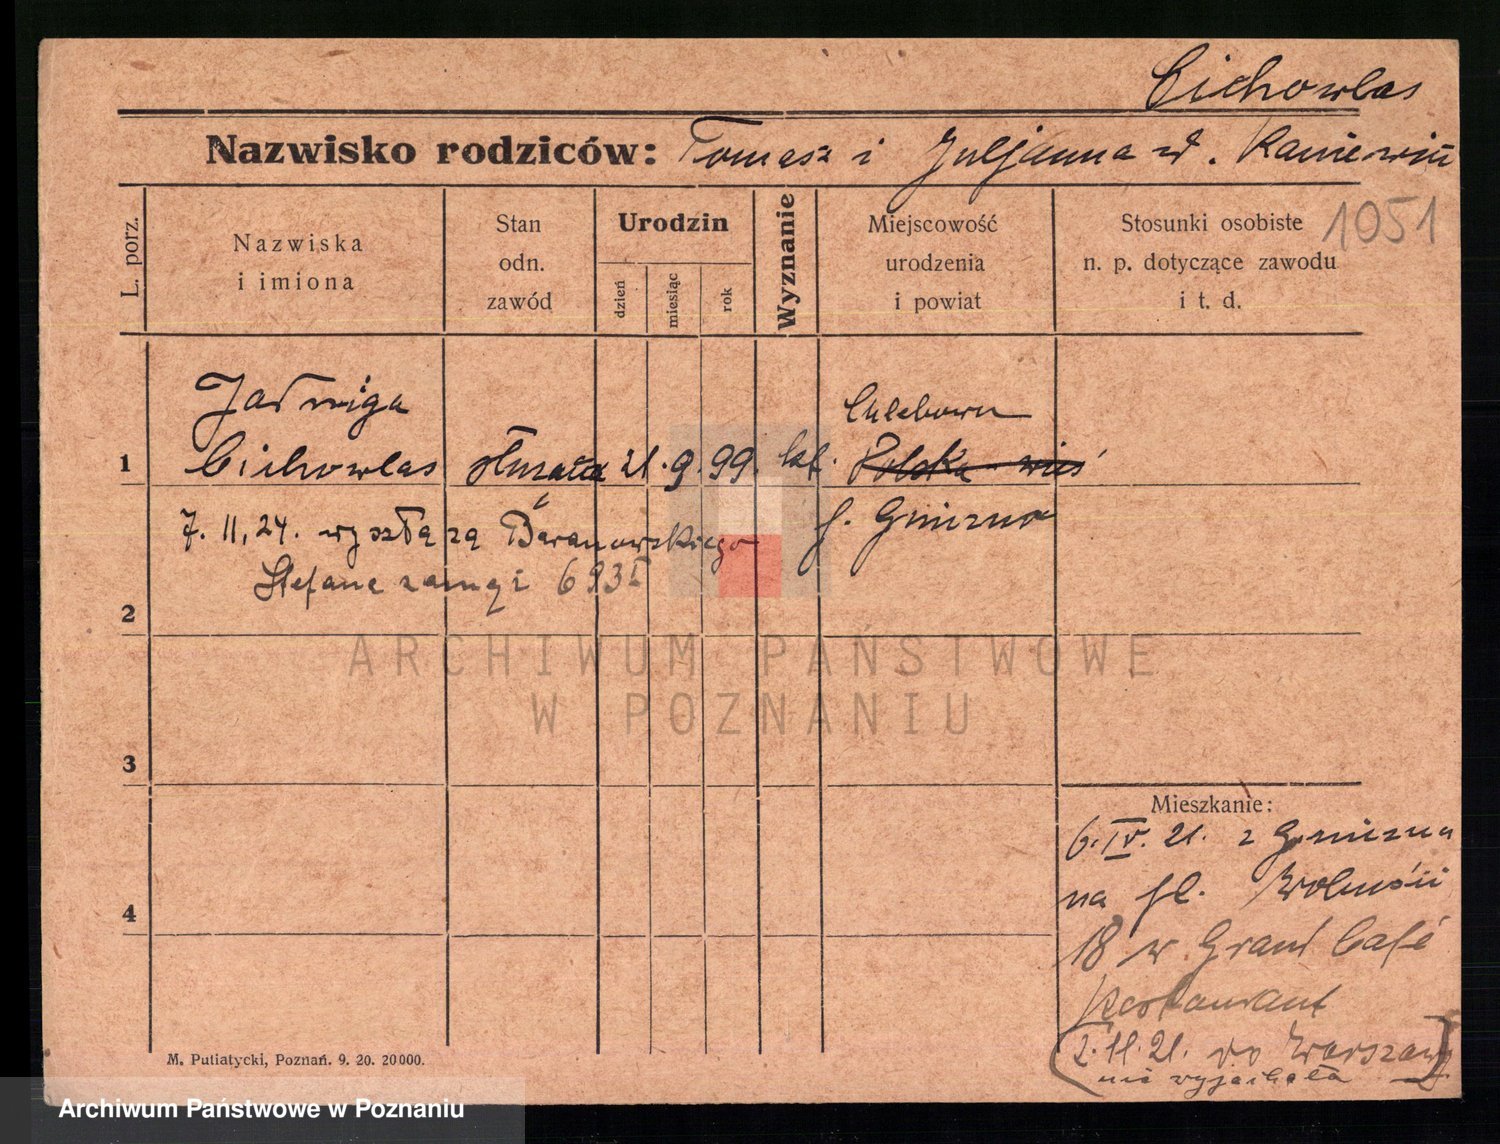 Cichowlas
Nazwisko rodziców: Tomasz i Juljanna
1051
L. porz.
Nazwiska
i imiona
Stan
odn.
zawód
Urodzin
dzień
miesiąc
rok
Wyznanie
Miejscowość
urodzenia
i powiat
Stosunki osobiste
n. p. dotyczące zawodu
i t. d.
Jadwiga
1 Cichowlas służąca 21. 9. 99. kat. Polska wieś
p. Gniezno
7. 11. 24. wyszła za Baranowskiego
Stefana zam
2
ARCHIWUM PAŃSTWOWE
W POZNANIU
3
4
Mieszkanie:
6. IV. 21. z Gniezna
na pl. Wolności
18 w Grand Café
Restaurant
11. 21. do Warszawy
nie wyjechała
M. Putiatycki, Poznań. 9. 20. 20000.
Archiwum Państwowe w Poznaniu